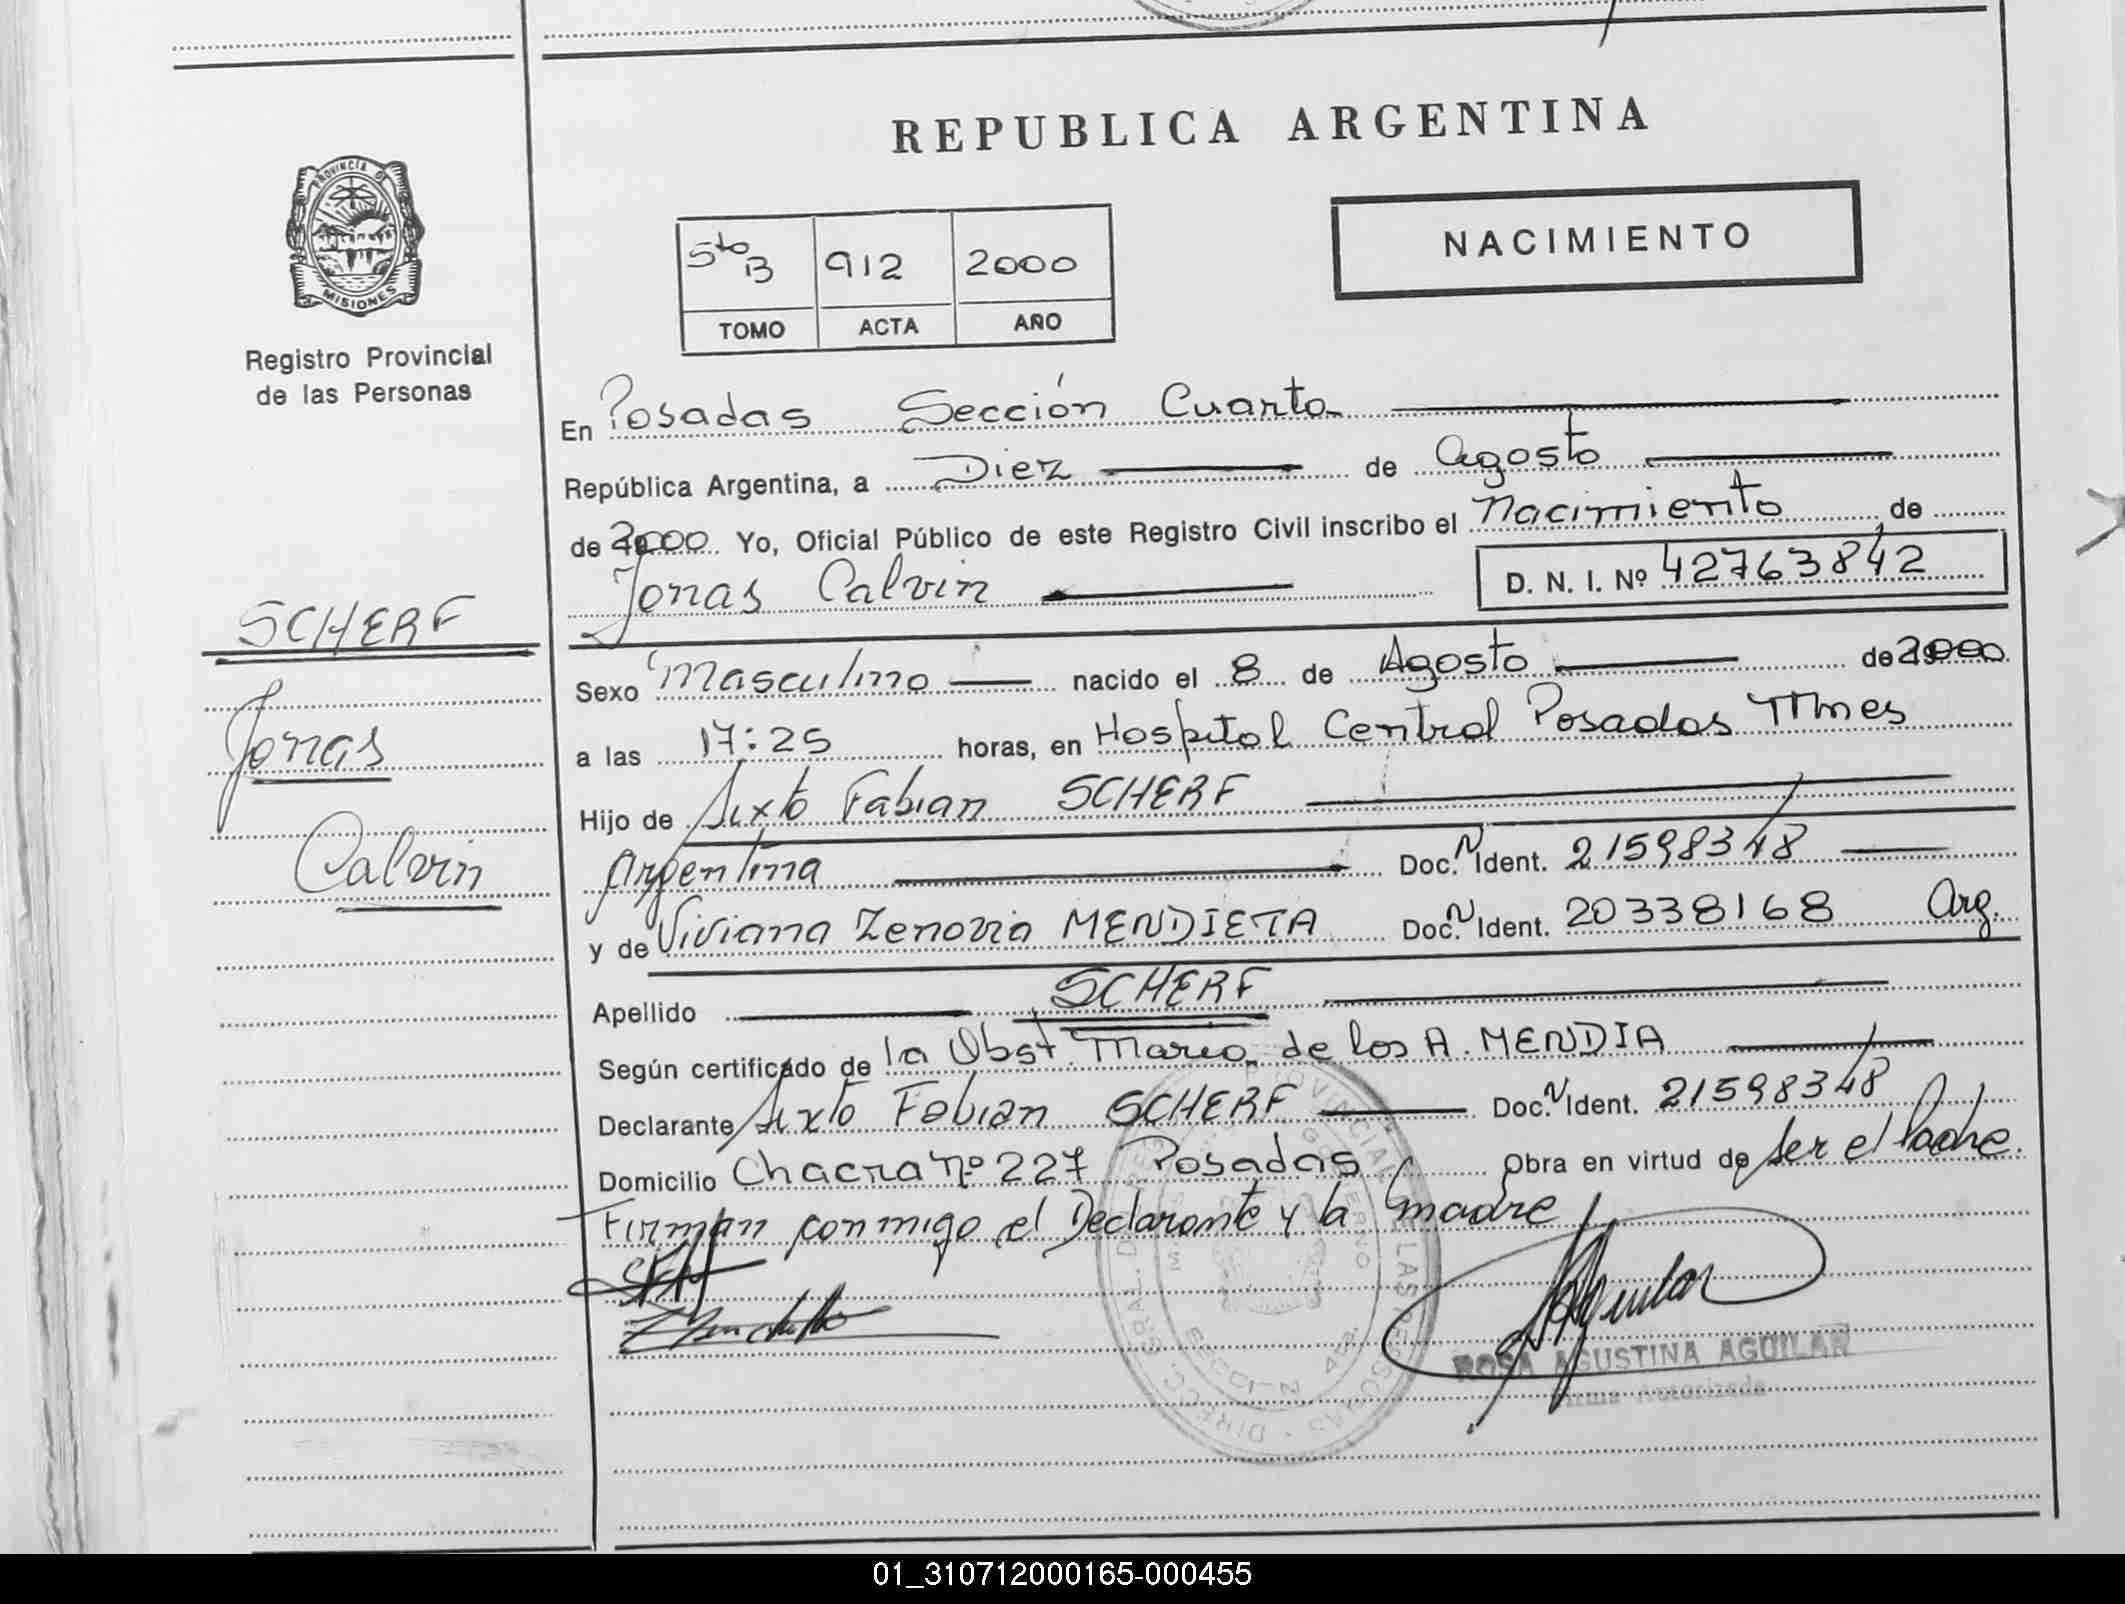 REPUBLICA ARGENTINA
NACIMIENTO
5to B 912 2000
TOMO ACTA AÑO
PROVINCIA DE
MISIONES
Registro Provincial
de las Personas
En Posadas Sección Cuarta
República Argentina, a Diez de Agosto
de 2000 Yo, Oficial Público de este Registro Civil inscribo el Nacimiento de
Jonas Calvin D. N. I. Nº 42763842
SCHERF
Jonas
Calvin
Sexo Masculino nacido el 8 de Agosto de 2000
a las 17:25 horas, en Hospital Central Posadas Mnes
Hijo de Sixto Fabian SCHERF
Argentina Doc. N Ident. 21598348
y de Viviana Zenovia MENDIETA Doc. N Ident. 20338168 Arg.
Apellido SCHERF
Según certificado de la Obst. Maria de los A. MENDIA
Declarante Sixto Fabian SCHERF Doc. N Ident. 21598348
Domicilio Chacra nº 227 Posadas Obra en virtud de ser el Padre.
Firman conmigo el Declarante y la madre
ROSA AGUSTINA AGUILAR
Firma Autorizada
01_310712000165-000455